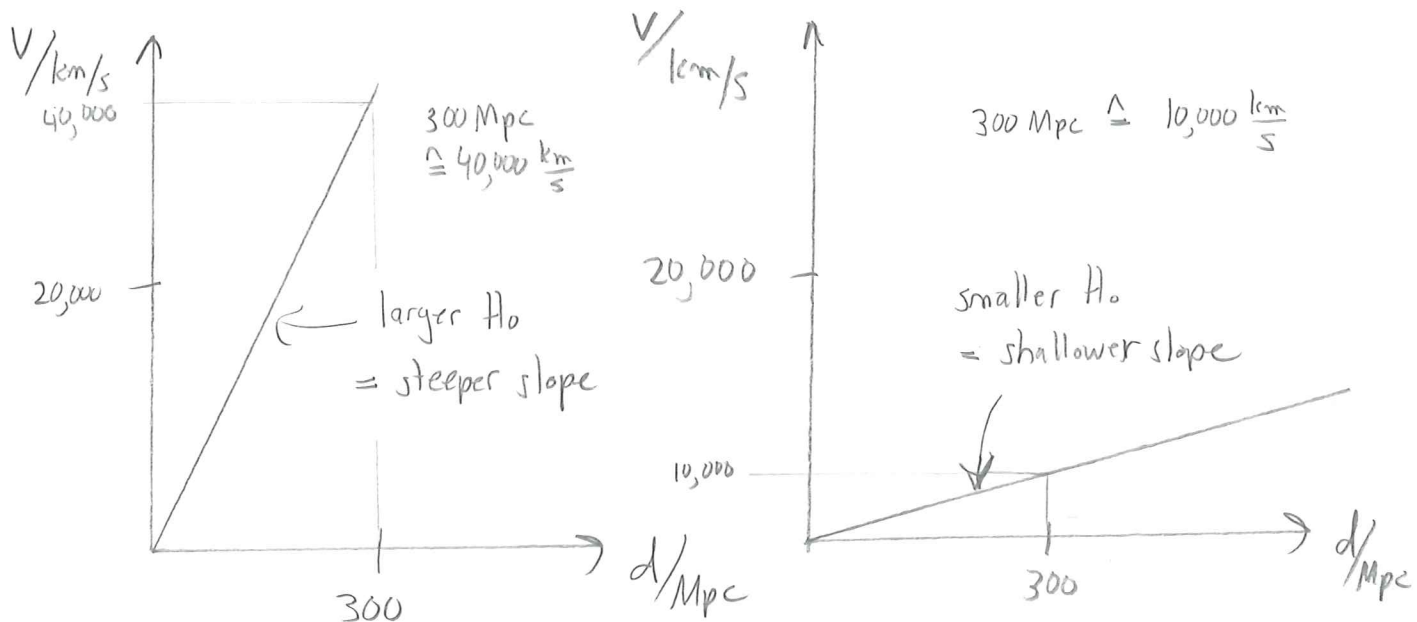 V/km/s
40,000
300 Mpc
≙ 40,000 km/s
20,000
larger H₀
= steeper slope
300
d/Mpc
V/km/s
300 Mpc ≙ 10,000 km/s
20,000
smaller H₀
= shallower slope
10,000
300
d/Mpc